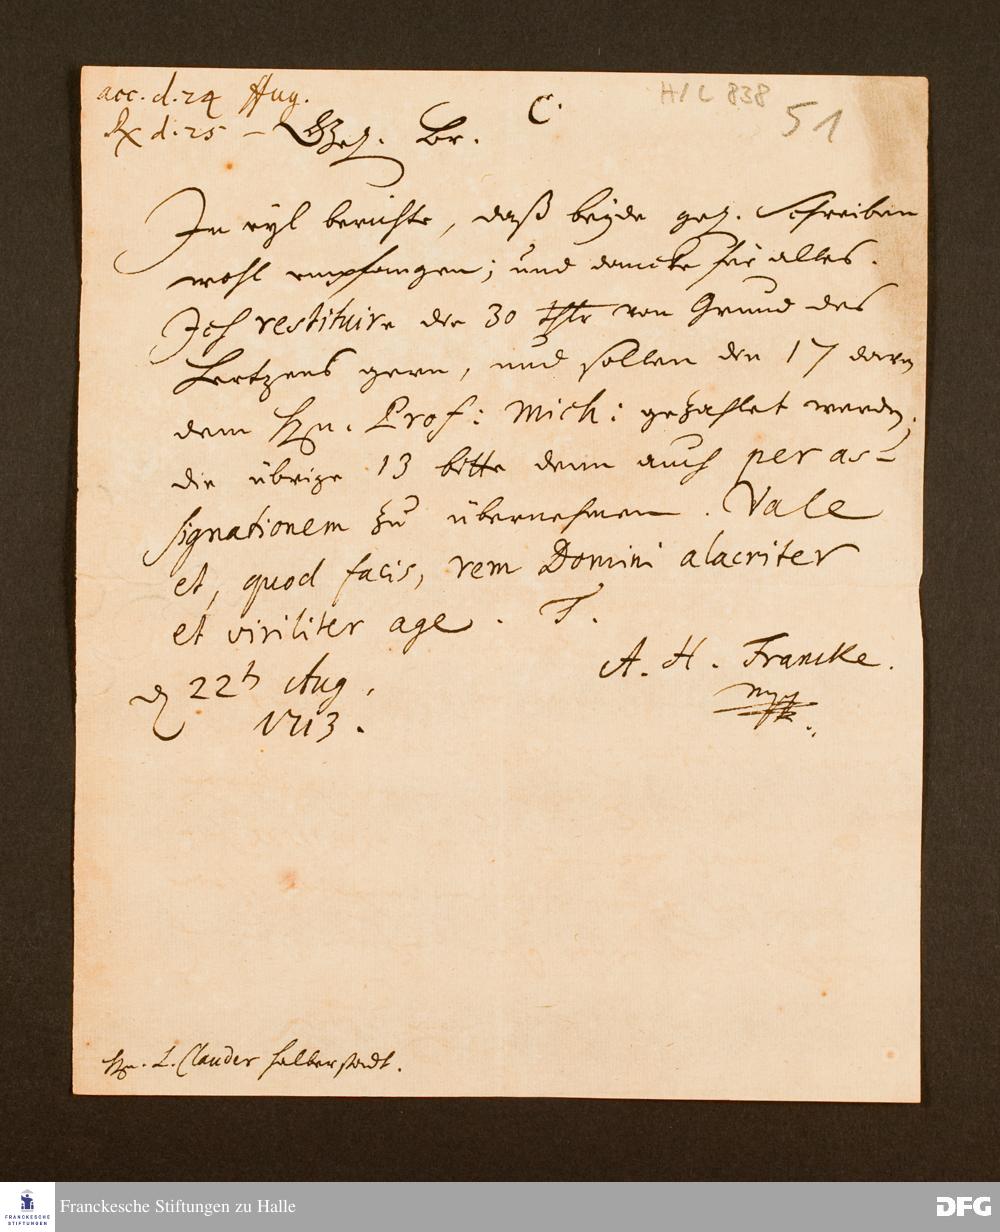 acc. d. 24 Aug.
Rx d. 25 –
H/C 838
51
C.
Gel. Br.
In eyl berichte, daß beyde gel. Schreiben
wohl empfangen; und dancke für alles.
Ich restituire die 30 Thlr von Grund des
Hertzens gern, und sollen die 17 davon
dem Hn. Prof: Mich: gezahlet werden;
die übrige 13 bitte denn auch per as-
signationem zu übernehmen. Vale
et, quod facis, rem Domini alacriter
et viriliter age. F.
A. H. Francke.
d 22t Aug.
1713.
Hn. L. Clauder Halberstadt.
FRANCKESCHE
STIFTUNGEN
Franckesche Stiftungen zu Halle
DFG